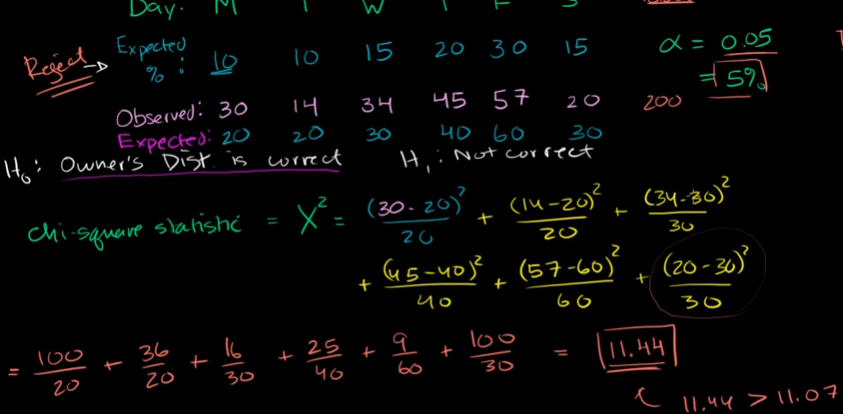 Day: M T W T F S
Reject → Expected %: 10 10 15 20 30 15 α = 0.05
= 5%
Observed: 30 14 34 45 57 20 200
Expected: 20 20 30 40 60 30
H₀: Owner's Dist. is correct H₁: Not correct
chi-square statistic = X² = (30-20)²/20 + (14-20)²/20 + (34-30)²/30
+ (45-40)²/40 + (57-60)²/60 + (20-30)²/30
= 100/20 + 36/20 + 16/30 + 25/40 + 9/60 + 100/30 = 11.44
11.44 > 11.07